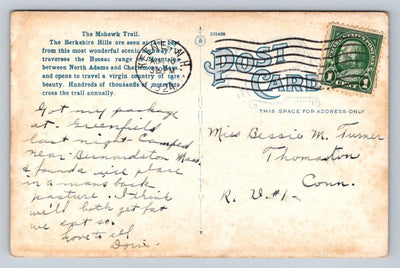 The Mohawk Trail.
The Berkshire Hills are seen at the best
from this most wonderful scenic highway. It
traverses the Hoosac range of Mountains
between North Adams and Charlemont, Mass.
and opens to travel a virgin country of rare
beauty. Hundreds of thousands of motorists
cross the trail annually.
Got my package
at Greenfield
last night. Camped
near Bernardston Mass.
& found a nice place
in a mans back
pasture. I think
we'll both get fat
we eat so.
Love to all
Doris.
POST
CARD
THIS SPACE FOR ADDRESS ONLY
1 CENT 1
Miss Bessie M. Turner
Thomaston
Conn.
R. U #1.